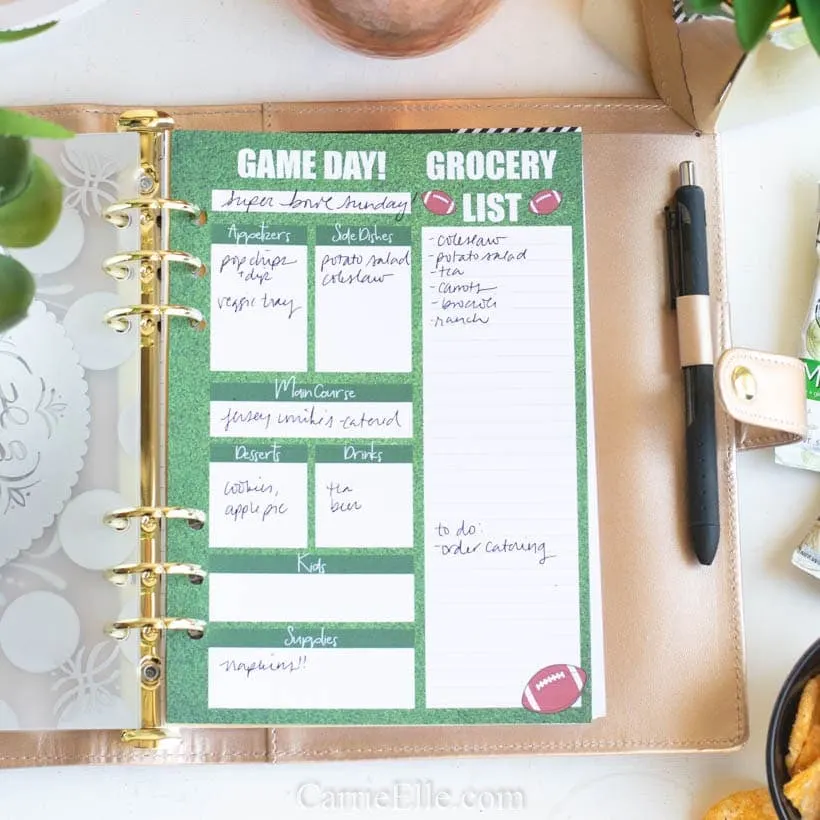 GAME DAY!
super bowl sunday!
Appetizers
pop chips
+ dip
veggie tray
Side Dishes
potato salad
coleslaw
Main Course
jersey mike's - catered
Desserts
cookies,
apple pie
Drinks
tea
beer
Kids
Supplies
napkins!!
GROCERY
LIST
- coleslaw
- potato salad
- tea
- carrots
- broccoli
- ranch
to do:
- order catering
CarrieElle.com